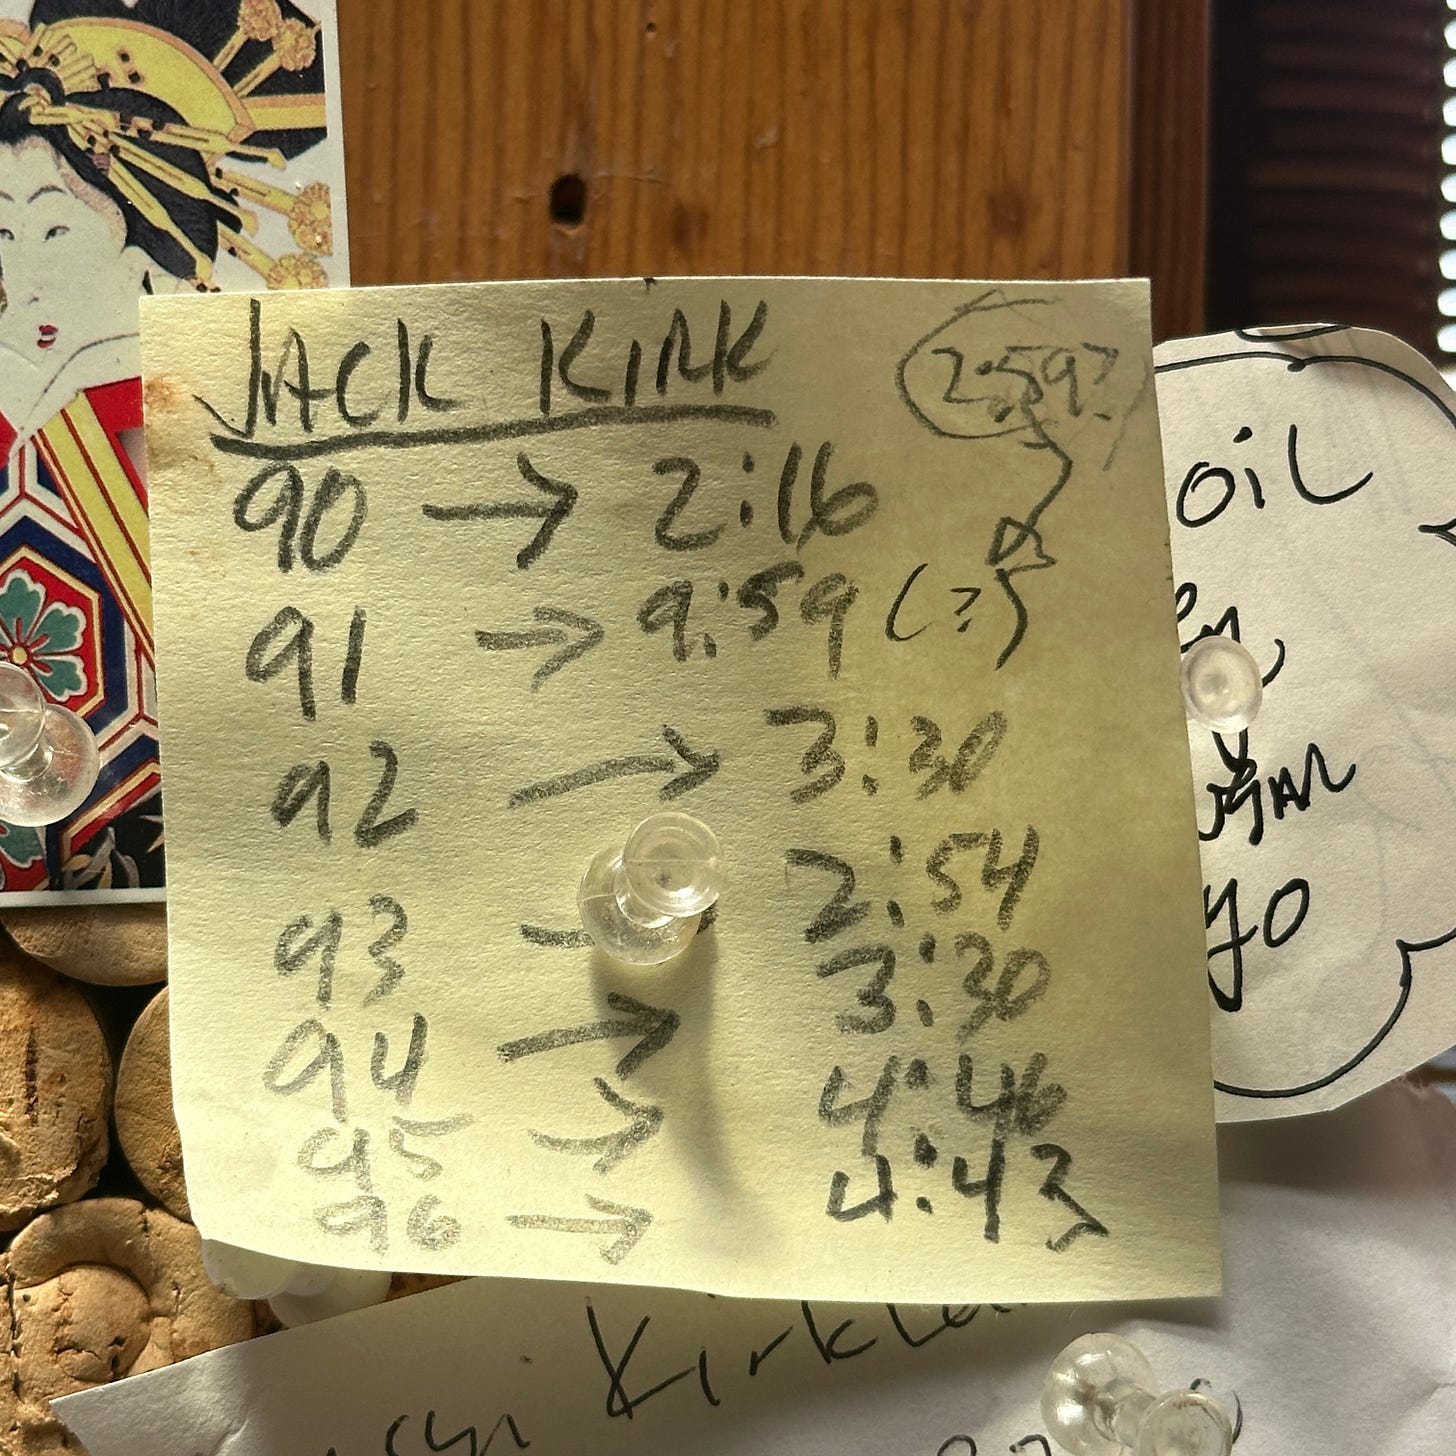 JACK KIRK
2:59?
90 → 2:16
91 → 9:59 (?)
92 → 3:30
93 → 2:54
94 → 3:30
95 → 4:46
96 → 4:43
OIL
YO